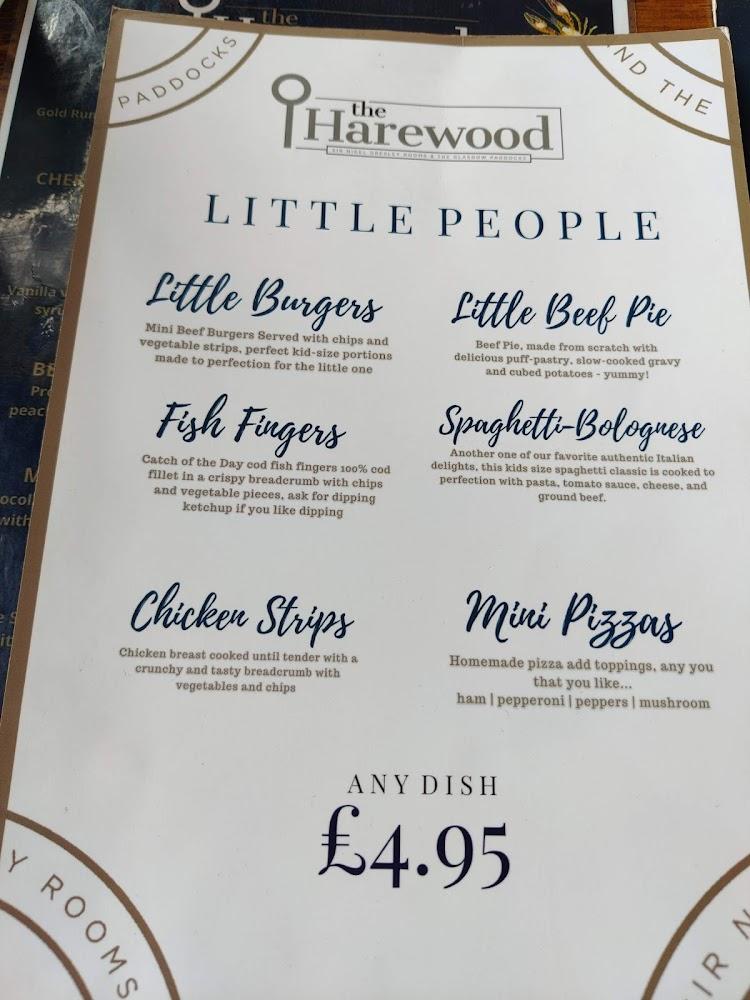 the
Gold Run
PADDOCKS
ND THE
the
Harewood
SIR NIGEL GRESLEY ROOMS & THE GLASGOW PADDOCKS
LITTLE PEOPLE
Little Burgers
Mini Beef Burgers Served with chips and
vegetable strips, perfect kid-size portions
made to perfection for the little one
Little Beef Pie
Beef Pie, made from scratch with
delicious puff-pastry, slow-cooked gravy
and cubed potatoes - yummy!
Fish Fingers
Catch of the Day cod fish fingers 100% cod
fillet in a crispy breadcrumb with chips
and vegetable pieces, ask for dipping
ketchup if you like dipping
Spaghetti-Bolognese
Another one of our favorite authentic Italian
delights, this kids size spaghetti classic is cooked to
perfection with pasta, tomato sauce, cheese, and
ground beef.
Chicken Strips
Chicken breast cooked until tender with a
crunchy and tasty breadcrumb with
vegetables and chips
Mini Pizzas
Homemade pizza add toppings, any you
that you like...
ham | pepperoni | peppers | mushroom
ANY DISH
£4.95
Y ROOMS
IR N